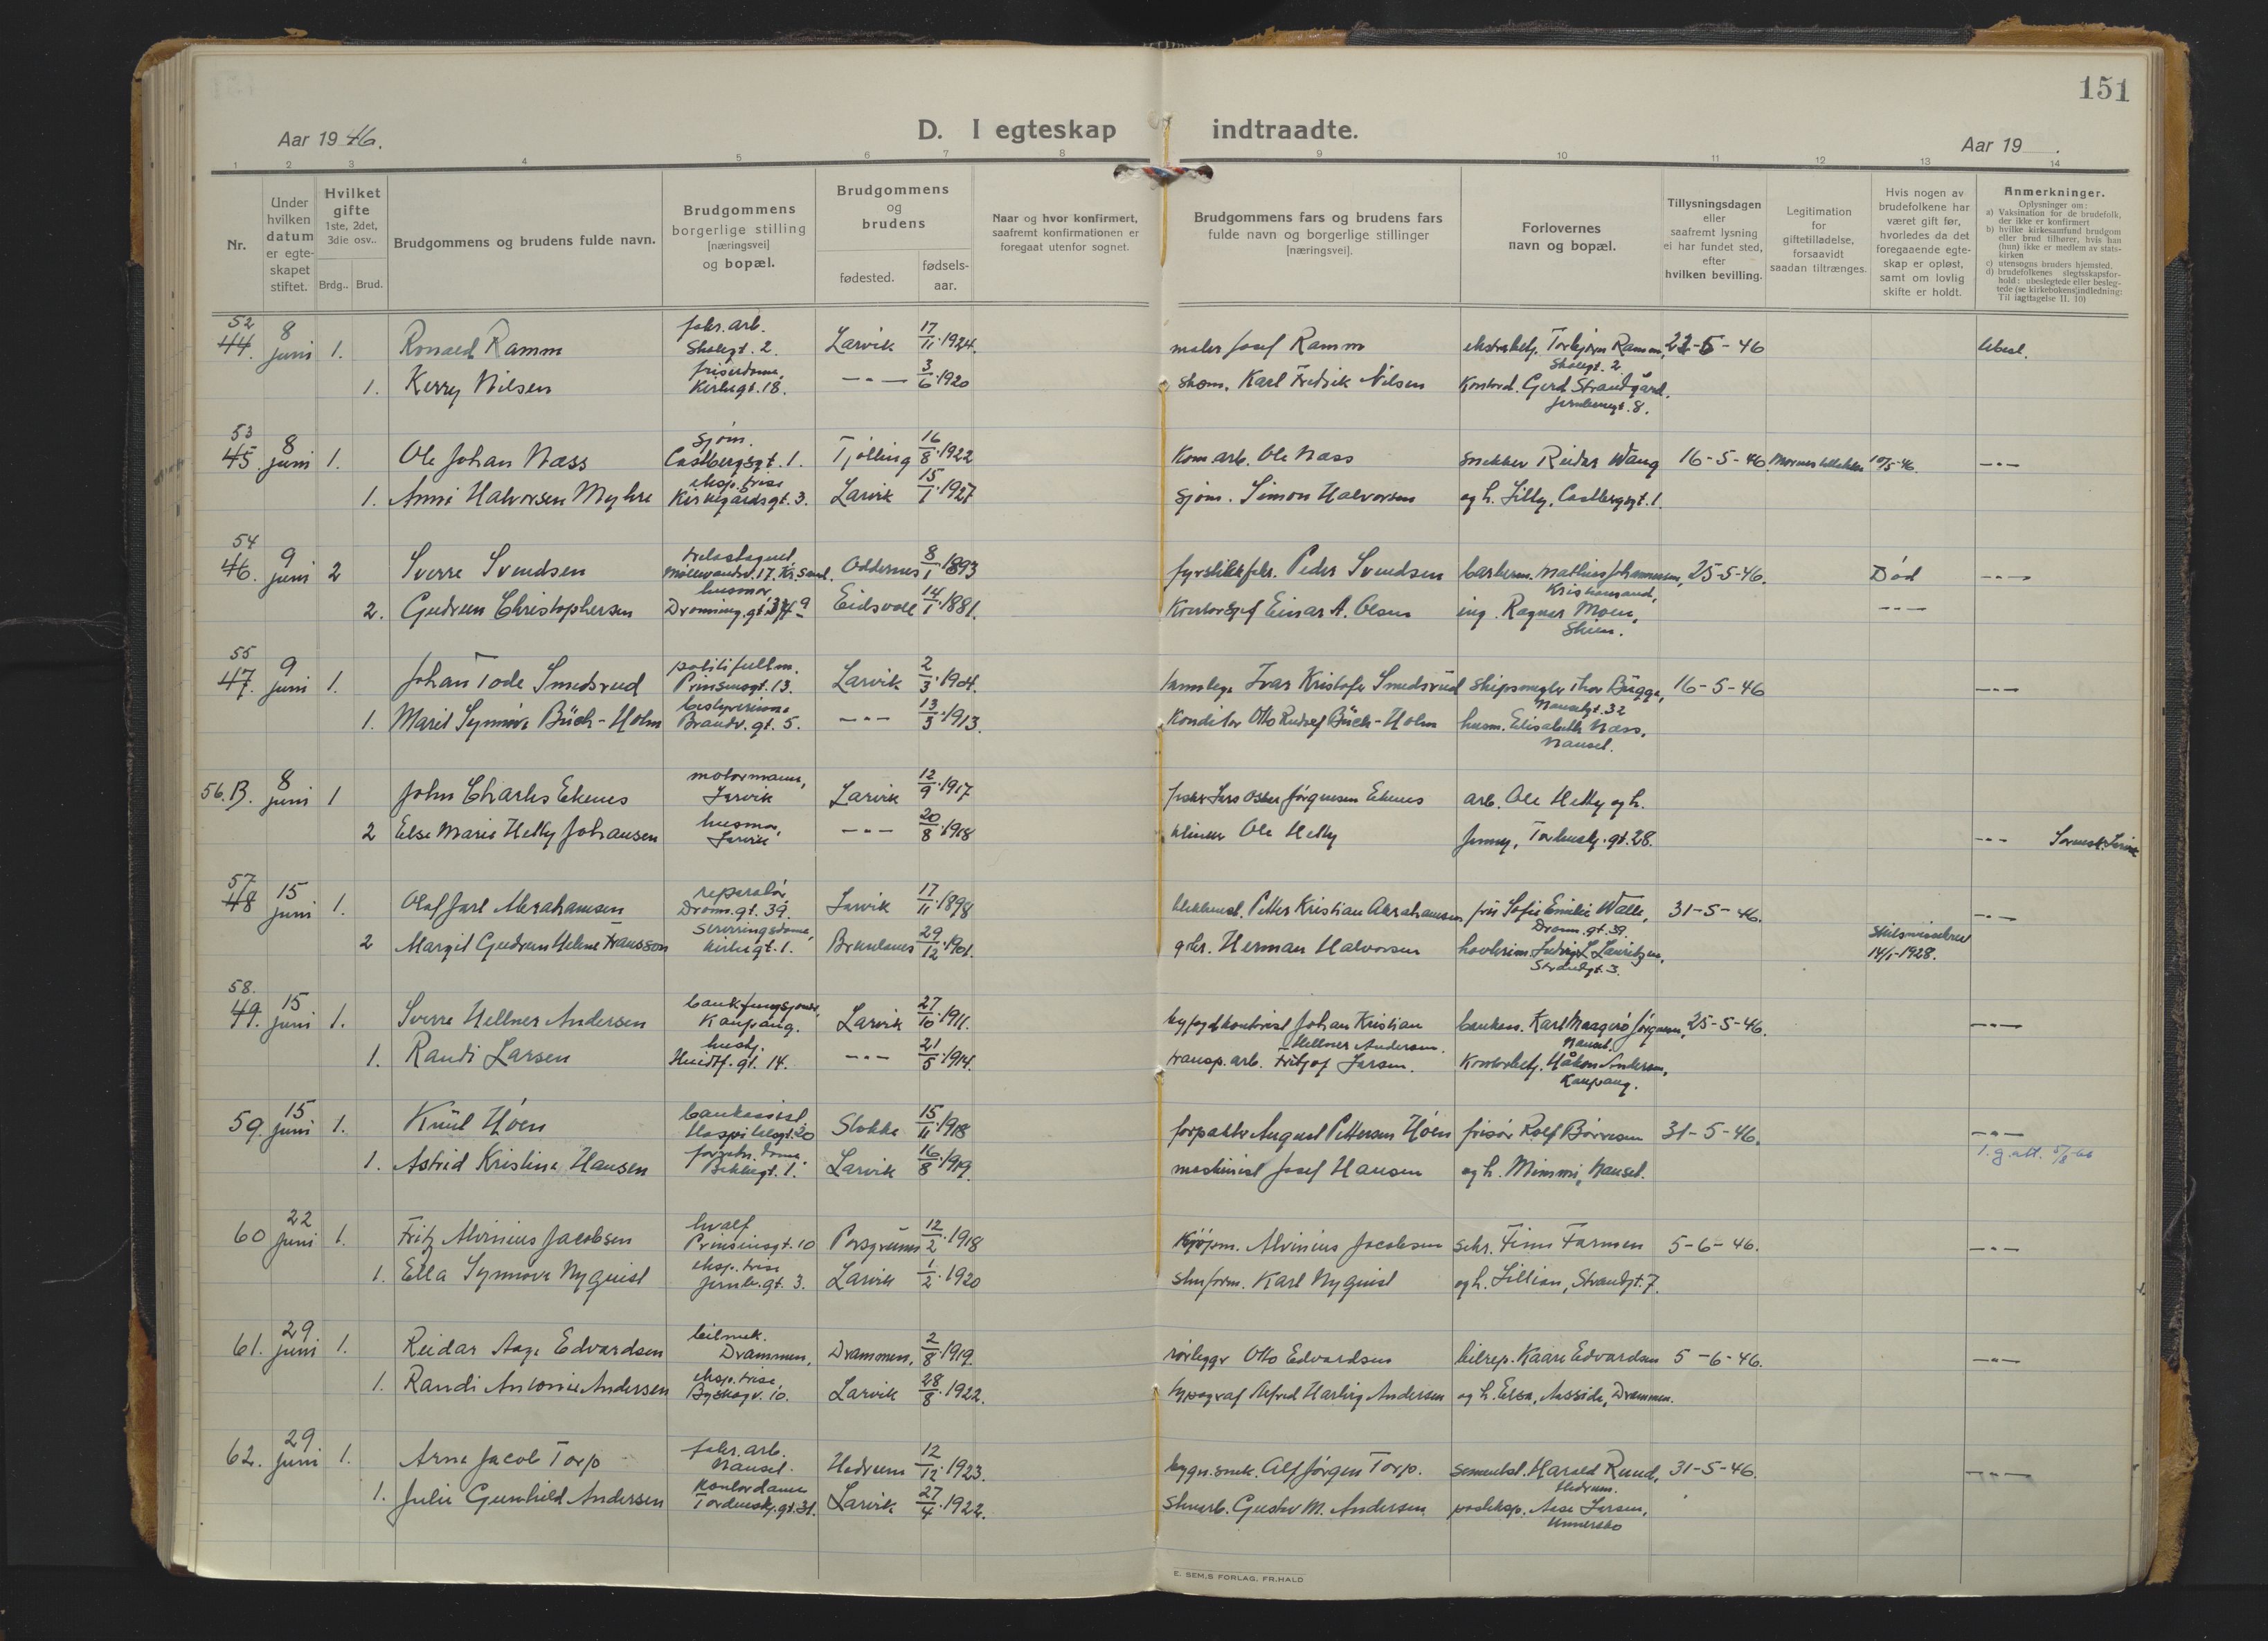 151
Aar 1946.
D. I egteskap indtraadte.
Aar 19 .
1 2 3 4 5 6 7 8 9 10 11 12 13 14
Nr.
Under hvilken datum er egte-skapet stiftet.
Hvilket gifte 1ste, 2det, 3die osv..
Brdg.. Brud.
Brudgommens og brudens fulde navn.
Brudgommens borgerlige stilling [næringsvei] og bopæl.
Brudgommens og brudens
fødested.
fødsels-aar.
Naar og hvor konfirmert, saafremt konfirmationen er foregaat utenfor sognet.
Brudgommens fars og brudens fars fulde navn og borgerlige stillinger [næringsvei].
Forlovernes navn og bopæl.
Tillysningsdagen eller saafremt lysning ei har fundet sted, efter hvilken bevilling.
Legitimation for giftetilladelse, forsaavidt saadan tiltrænges.
Hvis nogen av brudefolkene har været gift før, hvorledes da det foregaaende egte-skap er opløst, samt om lovlig skifte er holdt.
Anmerkninger.
Oplysninger om:
a) Vaksination for de brudefolk, der ikke er konfirmert
b) hvilke kirkesamfund brudgom eller brud tilhører, hvis han (hun) ikke er medlem av stats-kirken
c) utensogns bruders hjemsted.
d) brudefolkenes slegtsskapsfor-hold: ubeslegtede eller besleg-tede (se kirkebokens indledning: Til iagttagelse II. 10)
52 44. 8 juni 1. Ronald Ramm fabr. arb. Skolegt. 2. Larvik 17/11 1924. maler Josef Ramm Torbjørn Ramm, Skolegt. 2 22-5-46 Ubesl.
1. Kerry Nilsen frisørdame, Kirkegt. 18. -"- 3/6 1920 skom. Karl Fredrik Nilsen Kontord. Gerd Strandgård, Jernbanegt. 8.
53 45. 8 juni 1. Ole Johan Næss sjøm. Castbergsgt. 1. Tjølling 16/8 1922 Kom. arb. Ole Næss snekker Reidar Wang 16-5-46 10/5-46 -"-
1. Anni Halvorsen Myhre eksp. trise Kirkegårdsgt. 3. Larvik 15/1 1927 sjøm. Simon Halvorsen og h. Lilly, Castbergsgt. 1.
54 46. 9 juni 2 Sverre Svendsen Oddernes 8/1 1893 Peder Svendsen Kristiansand, 25-5-46. Død -"-
2. Gudrun Christophersen husmor Eidsvoll 14/1 1881. Kontorsjef Einar A. Olsen ing. Ragnar Moen, Skien. -"-
55 47. 9 juni 1. Johan Tode Smedsrud politifullm. Prinsensgt. 13. Larvik 2/3 1904. tannlege Ivar Kristofer Smedsrud skipsmegler Thor Bugge, Nanselgt. 32 16-5-46 -"-
1. Marit Synnøve Büch-Holm bestyrerinne Brandv. gt. 5. -"- 13/3 1913. Konditor Otto Rudolf Büch-Holm husm. Elisabeth Næss, Nanset.
56. B. 8 juni 1 John Charles Ekenes motormann, Larvik Larvik 12/9 1917 fisker Lars Oskar Jørgensen Ekenes arb. Ole Helly og h.
2 Else Marie Helly Johansen husmor, Larvik -"- 20/8 1918 Ole Helly Jenny, Tordenskj. gt. 28. -"-
57 48 15 juni 1. Olaf Jarl Abrahamsen reparatør Dronn. gt. 39. Larvik 17/11 1898 Petter Kristian Abrahamsen fru Sofie Emilie Walle, Dronn. gt. 39. 31-5-46. -"-
2 Margit Gudrun Helene Fransson serveringsdame, Kirkegt. 1. Brunlanes 29/12 1901. gbr. Herman Halvorsen Strandgt. 3. Skilsmissebrev 14/1-1928.
58. 49. 15 juni 1. Sverre Hellner Andersen bankfunksjonær, Kaupang. Larvik 27/10 1911. Johan Kristian Hellner Andersen. Karl Maagerø Jørgensen, Nanset. 25-5-46. -"-
1. Randi Larsen husbj. Huidtf. gt. 14. -"- 21/5 1914. transp. arb. Fritjof Larsen. Kontorbetj. Håkon Andersen, Kaupang.
59. 15 juni 1. Knut Høen bankassist. Hospitalsgt. 20 Stokke 15/11 1918 forpakter August Pettersen Høen frisør Rolf Børresen 31-5-46. -"-
1. Astrid Kristine Hansen Bekkegt. 1. Larvik 16/8 1919. maskinist Josef Hansen og h. Mimmi, Nanset. 1. g. att. 5/8-66
60 22 juni 1. Fritz Alvinius Jacobsen hvalf Prinsensgt. 10 Porsgrunn 12/2 1918 Alvinius Jacobsen sekr. Finn Farmen 5-6-46. -"-
1. Ella Synnøve Nyquist eksp. trise Jernb. gt. 3. Larvik 1/2 1920 Karl Nyquist og h. Lillian, Strandgt. 7.
61. 29. juni 1. Reidar Aage Edvardsen bilmek. Drammen, Drammen, 2/8 1919. rørlegger Otto Edvardsen bilrep. Kaare Edvardsen 5-6-46. -"-
1. Randi Antonie Andersen eksp. trise, Byskogv. 10. Larvik 28/8 1922. typograf Alfred Harbirg Andersen og h. Elsa, Åsside, Drammen.
62. 29. juni 1. Arne Jacob Torp fabr. arb. Nanset. Hedrum 12/12 1923. bygn. snek. Alf Jørgen Torp. Harald Ruud, Hedrum. 31-5-46. -"-
1. Julie Gunhild Andersen Kontordame Tordenskj. gt. 31. Larvik 27/4 1922. Gustav M. Andersen posteksp. Åse Larsen,
E. SEM.S FORLAG, FR.HALD